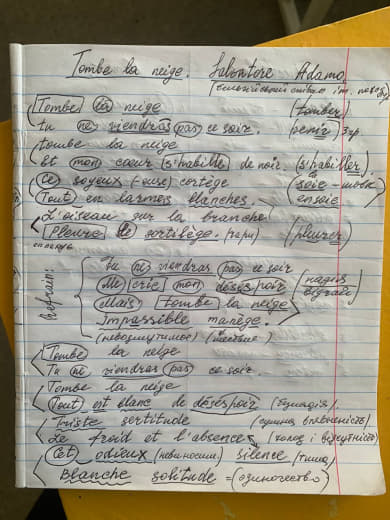 Tombe la neige. Salvatore Adamo
Tombe la neige (tomber)
tu ne viendras pas ce soir. (venir) 3гр
tombe la neige
Et mon cœur s'habille de noir. (s'habiller)
Ce soyeux (-euse) cortège (soie - шовк
Tout en larmes blanches. ensoie
L'oiseau sur la branche
Pleure le sortilège. (чари) (pleurer)
Refrain:
Tu ne viendras pas ce soir
Me crie mon désespoir
Mais tombe la neige
Impassible manège.
(невозмутимое)
Tombe la neige
Tu ne viendras pas ce soir.
Tombe la neige
Tout est blanc de désespoir
Triste certitude (сумна впевненість)
Le froid et l'absence (холод і відсутність)
Cet odieux silence (тиша)
Blanche solitude = (одиночество)